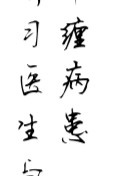 缠病患
习医生与